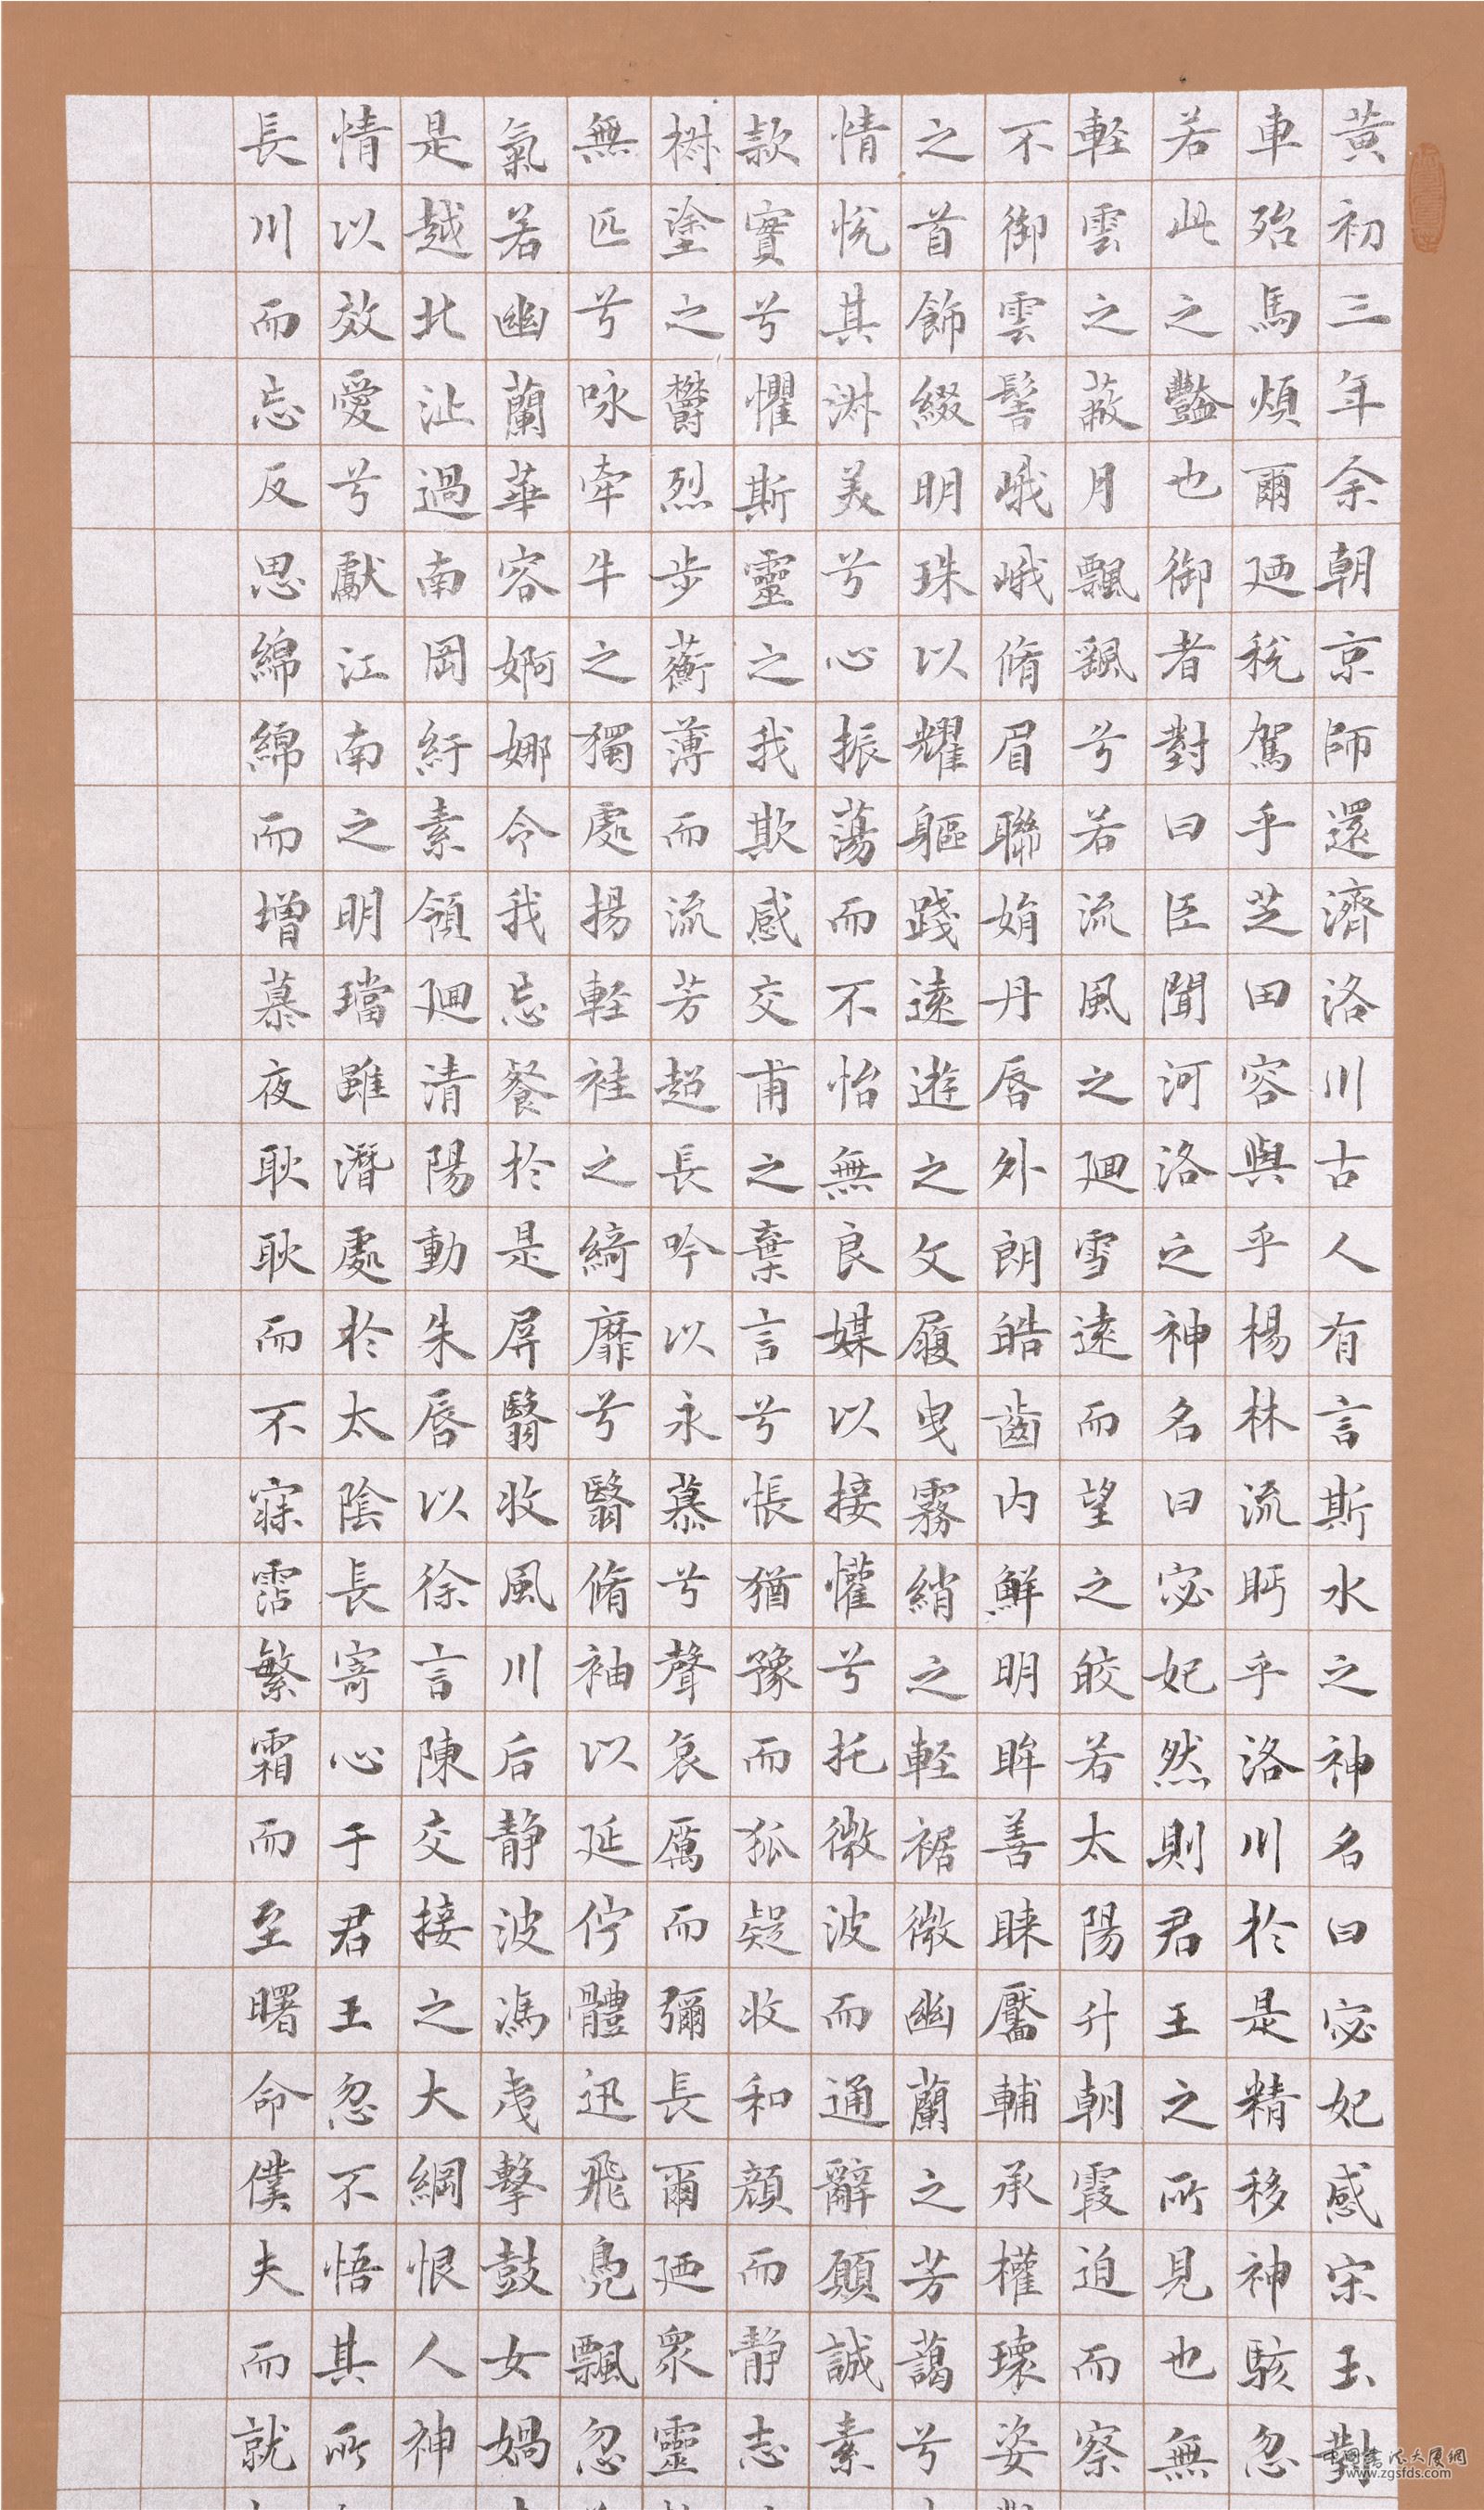 黃初三年余朝京師還濟洛川古人有言斯水之神名曰宓妃感宋玉對
車殆馬煩爾廼稅駕乎芝田容與乎楊林流眄乎洛川於是精移神駭忽
若此之豔也御者對曰臣聞河洛之神名曰宓妃然則君王之所見也無
輕雲之蔽月飄颻兮若流風之廻雪遠而望之皎若太陽升朝霞迫而察
不御雲髻峨峨脩眉聯娟丹唇外朗皓齒內鮮明眸善睞靨輔承權瓌姿
之首飾綴明珠以耀軀踐遠遊之文履曳霧綃之輕裾微幽蘭之芳藹兮
情悅其淋美兮心振蕩而不怡無良媒以接懽兮托微波而通辭願誠素
款實兮懼斯靈之我欺感交甫之棄言兮悵猶豫而狐疑收和顏而靜志
樹塗之鬱烈步蘅薄而流芳超長吟以永慕兮聲哀厲而彌長爾廼眾靈
無匹兮咏牽牛之獨處揚輕袿之綺靡兮翳脩袖以延佇體迅飛鳧飄忽
氣若幽蘭華容婀娜令我忘餐於是屏翳收風川后靜波馮夷擊鼓女媧
是越北沚過南岡紆素領廻清陽動朱唇以徐言陳交接之大綱恨人神
情以效愛兮獻江南之明璫雖潛處於太陰長寄心于君王忽不悟其所
長川而忘反思綿綿而增慕夜耿耿而不寐霑繁霜而至曙命僕夫而就
中國書法大廈網
www.zgsfds.com